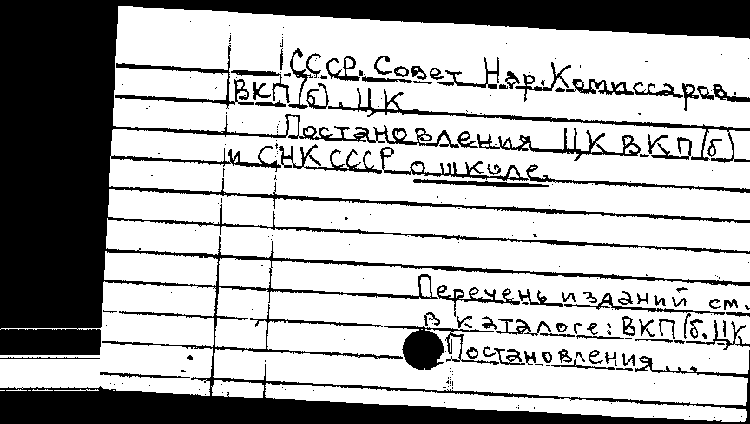 СССР. Совет Нар. Комиссаров.
ВКП(б). ЦК.
Постановления ЦК ВКП(б)
и СНК СССР о школе.
Перечень изданий см.
в каталоге: ВКП(б. ЦК
Постановления...